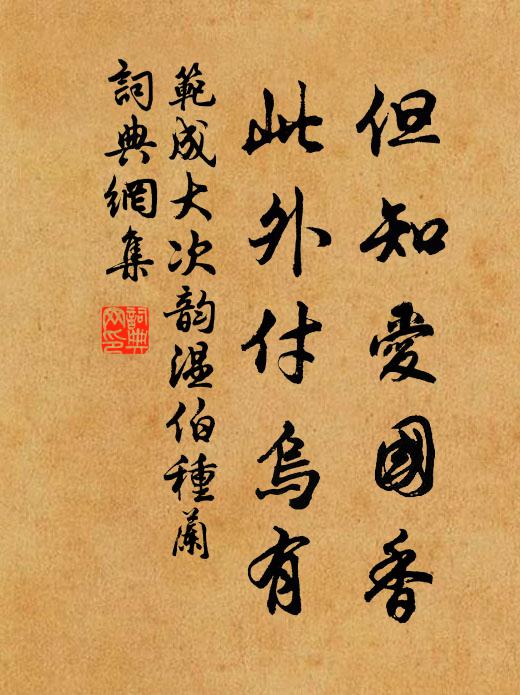 但知愛國香
此外付烏有
範成大次韵溫伯種蘭
詞典網集
詞典网印